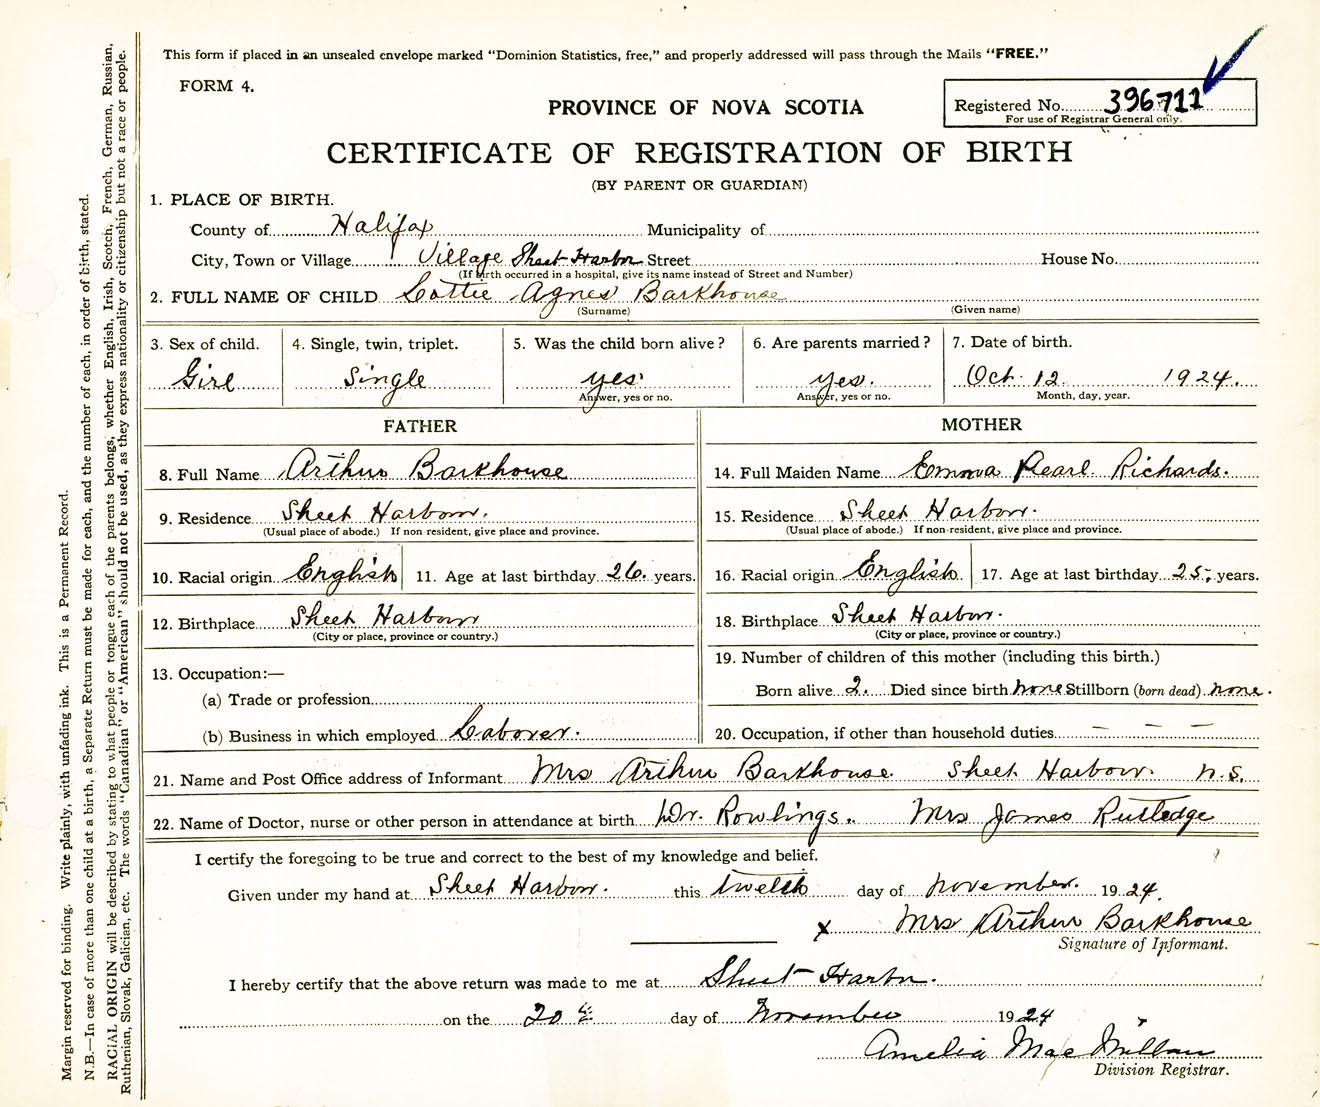 This form if placed in an unsealed envelope marked "Dominion Statistics, free," and properly addressed will pass through the Mails "FREE."
FORM 4.
Registered No. 396711
For use of Registrar General only.
PROVINCE OF NOVA SCOTIA
CERTIFICATE OF REGISTRATION OF BIRTH
(BY PARENT OR GUARDIAN)
1. PLACE OF BIRTH.
County of Halifax Municipality of
City, Town or Village Village Sheet Harbor Street House No.
(If birth occurred in a hospital, give its name instead of Street and Number)
2. FULL NAME OF CHILD Lottie Agnes Barkhouse
(Surname) (Given name)
3. Sex of child. 4. Single, twin, triplet. 5. Was the child born alive? 6. Are parents married? 7. Date of birth.
Girl Single yes yes. Oct. 12 1924.
Answer, yes or no. Answer, yes or no. Month, day, year.
FATHER MOTHER
8. Full Name Arthur Barkhouse 14. Full Maiden Name Emma Pearl Richards.
9. Residence Sheet Harbour. 15. Residence Sheet Harbour.
(Usual place of abode.) If non-resident, give place and province. (Usual place of abode.) If non-resident, give place and province.
10. Racial origin English 11. Age at last birthday 26. years. 16. Racial origin English. 17. Age at last birthday 25. years.
12. Birthplace Sheet Harbour 18. Birthplace Sheet Harbour.
(City or place, province or country.) (City or place, province or country.)
13. Occupation:— 19. Number of children of this mother (including this birth.)
(a) Trade or profession Born alive 2. Died since birth none Stillborn (born dead) none.
(b) Business in which employed Laborer. 20. Occupation, if other than household duties — — —
21. Name and Post Office address of Informant Mrs Arthur Barkhouse. Sheet Harbour. N.S.
22. Name of Doctor, nurse or other person in attendance at birth Dr. Rowlings. Mrs James Rutledge
I certify the foregoing to be true and correct to the best of my knowledge and belief.
Given under my hand at Sheet Harbour. this twelth day of November. 1924.
x Mrs Arthur Barkhouse
Signature of Informant.
I hereby certify that the above return was made to me at Sheet Harbor.
on the 20th day of November 1924
Amelia MacMillan
Division Registrar.
Margin reserved for binding. Write plainly, with unfading ink. This is a Permanent Record.
N.B.—In case of more than one child at a birth, a Separate Return must be made for each, and the number of each, in order of birth, stated.
RACIAL ORIGIN will be described by stating to what people or tongue each of the parents belongs, whether English, Irish, Scotch, French, German, Russian,
Ruthenian, Slovak, Galician, etc. The words "Canadian" or "American" should not be used, as they express nationality or citizenship but not a race or people.